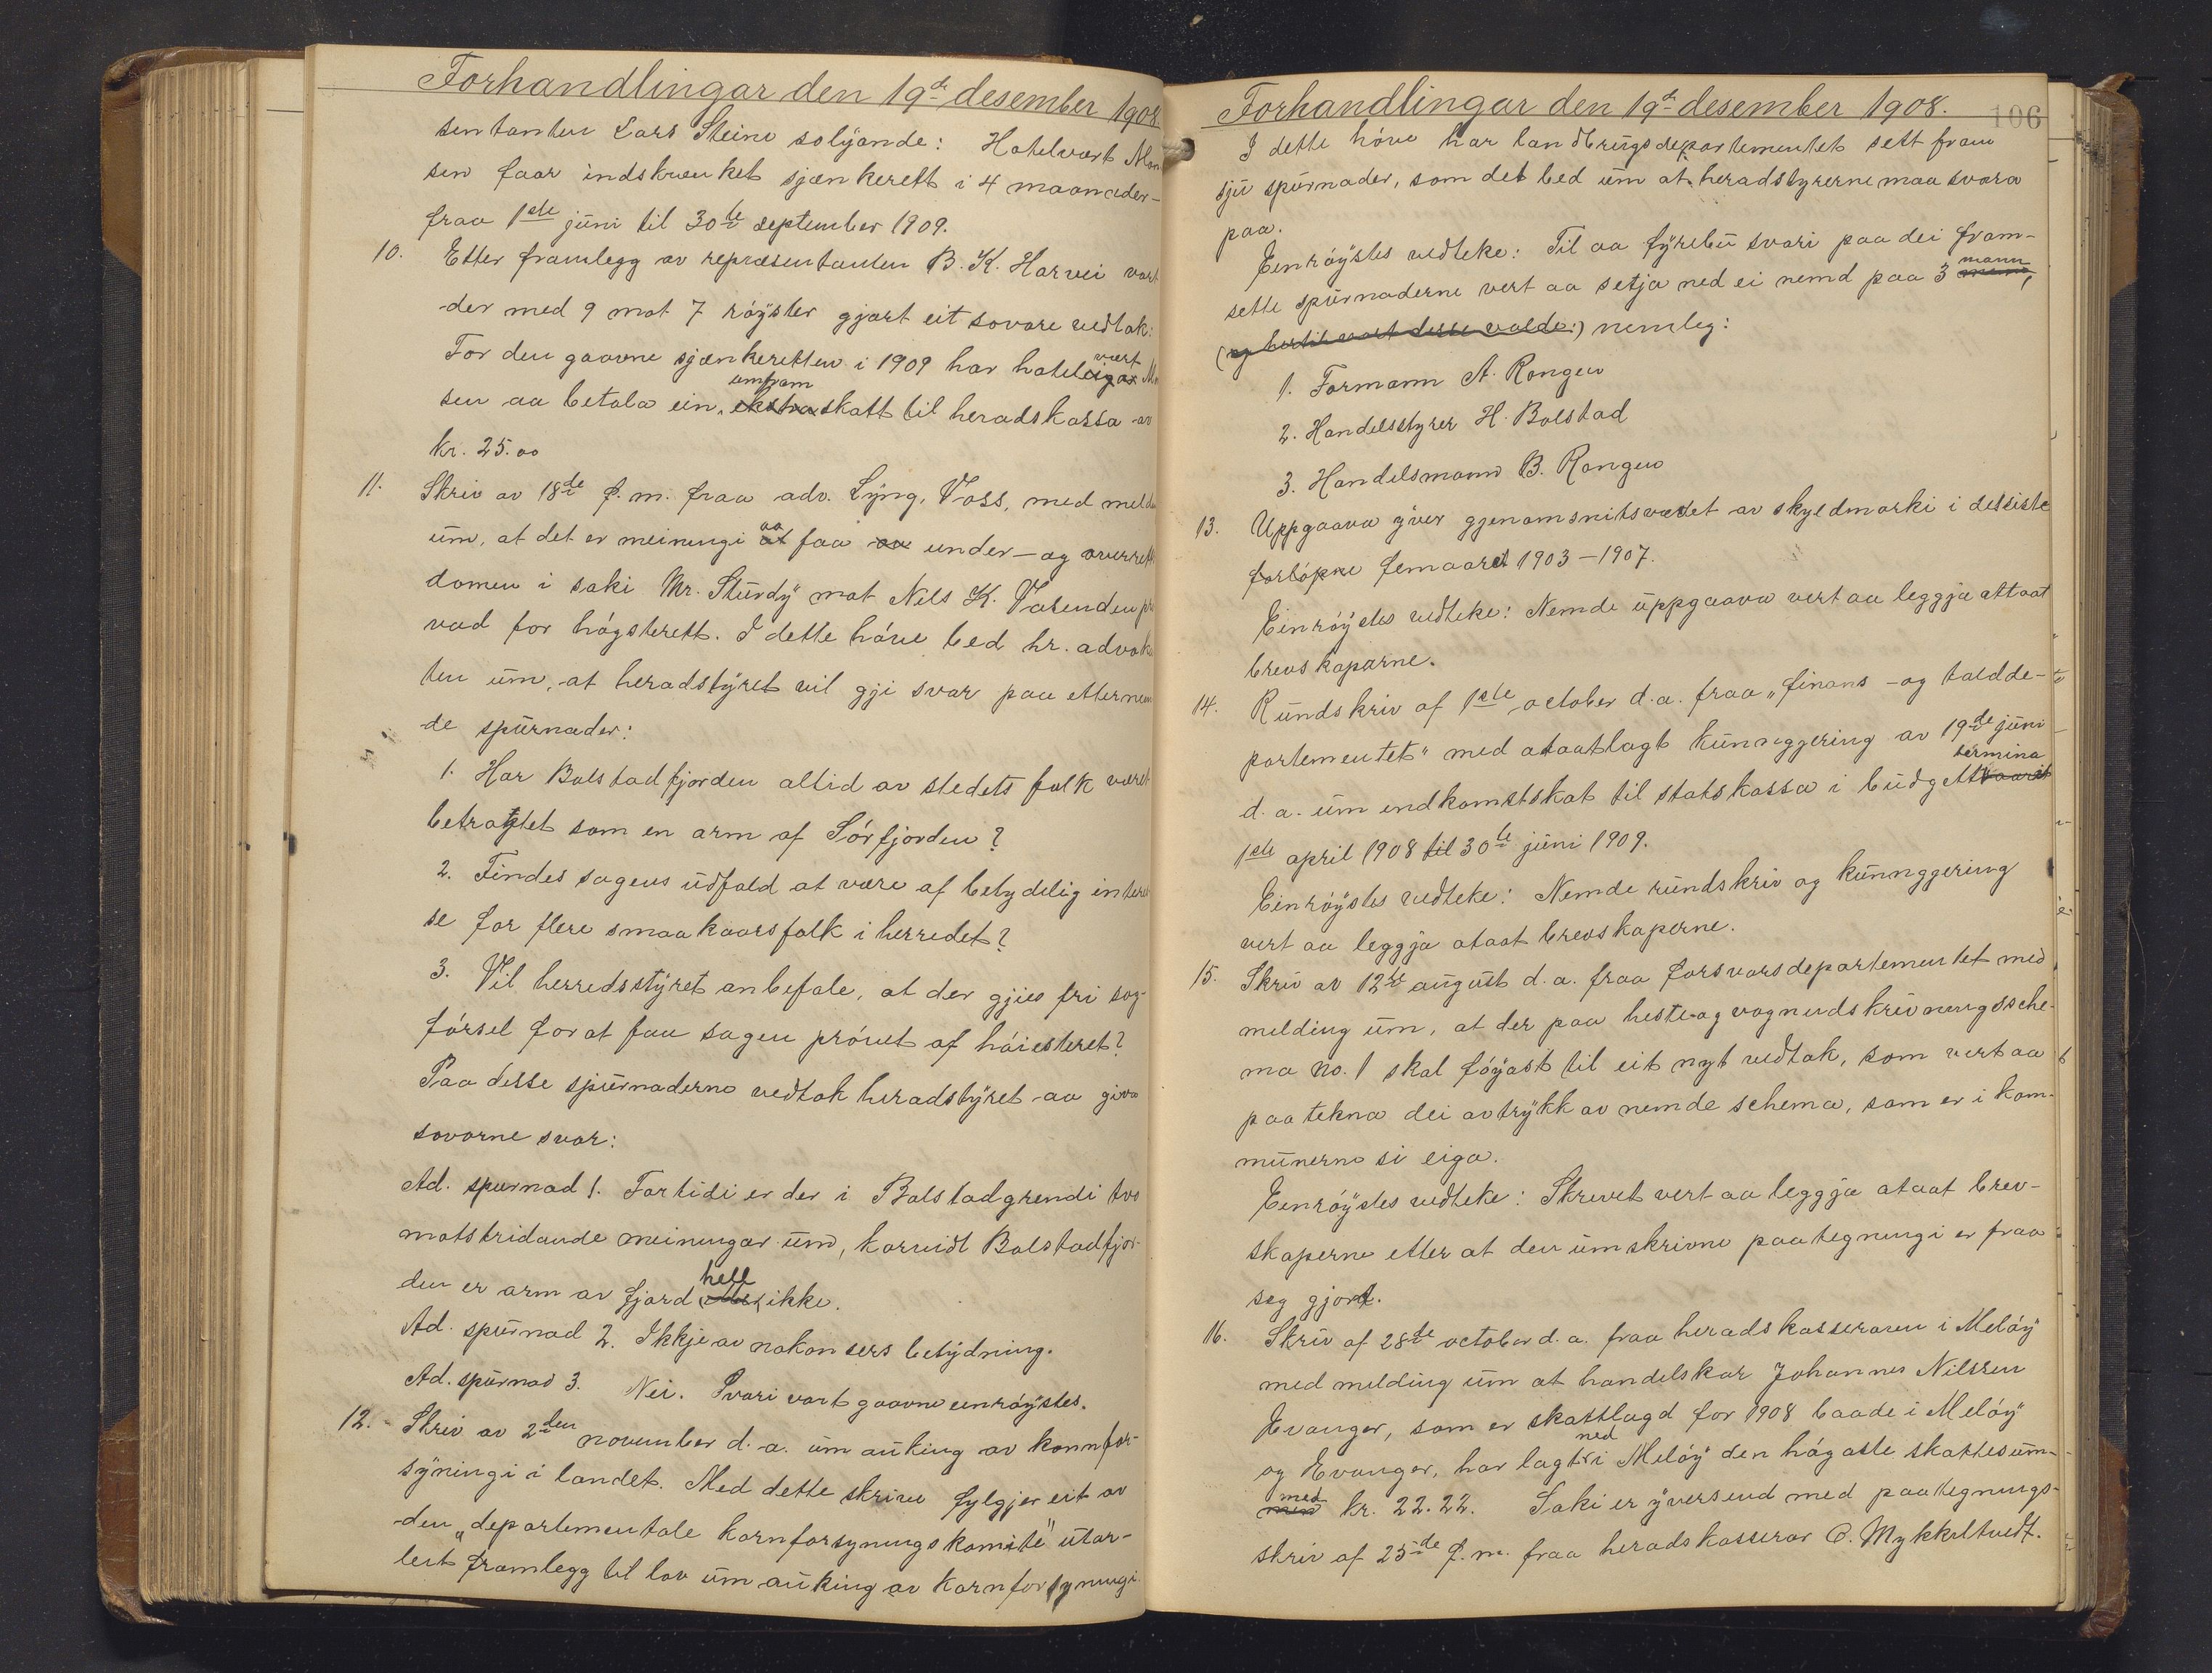 Forhandlingar den 19de desember 1908
sentanten Lars Steine solýande: Hotelvært Mon
sen faar indskrenket sjænkerett i 4 maaneder-
fraa 1ste juni til 30te september 1909.
10. Etter framlegg av repræsentanten B. K. Horvei vart
der med 9 mot 7 röyster gjort eit sovore vedtak:
For den gaavne sjænkeretten i 1909 har hoteleigar vært
sen aa betala ein ekstra umfram skatt til heradskassa av
kr. 25.00
11. Skriv av 18de f.m. fraa adv. Lyng, Voss, med
um, at det er meiningi at aa faa av under- og overrett
domen i saki Mr. Sturdy mot Nils K. Vasenden
vad for högsterett. I dette höve bed hr. advoka
ten um, at heradstyret vil gji svar paa etternem
de spurnader:
1. Har Bolstadfjorden altid av stedets folk været
betragtet som en arm af Sörfjorden?
2. Findes sagens udfald at være af betydelig interes
se for flere smaakaarsfolk i herredet?
3. Vil herredsstyret anbefale, at der gjies fri sag-
försel for at faa sagen prövet af höiesteret?
Paa desse spurnaderne vedtok heradstyret aa giva
sovorne svar:
Ad. spurnad 1. Fortidi er der i Bolstadgrendi tvo
motstridande meiningar um, korvidt Bolstadfjor-
den er arm av fjord eller hell ikke.
Ad. spurnad 2. Ikkje av nokon sers betydning.
Ad. spurnad 3. Nei. Svari vart gaavne einröystes.
12. Skriv av 2den november d.a. um auking av kornfor-
syningi i landet. Med dette skrive fylgjer eit av
den "departementale kornforsynings komité" utar-
leit framlegg til lov um auking av kornforsyningi.
Forhandlingar den 19de desember 1908. 106
I dette höve har landbrugsdepartementet sett fram
sju spurnader, som det bed um at heradstyrerne maa svara
paa.
Einröystes vedteke: Til aa fyrebu svari paa dei fram-
sette spurnaderne vert aa setja ned ei nemd paa 3 mann,
(og hertil vart desse valde:) nemleg:
1. Formann A. Rongen
2. Handelsstyrer H. Bolstad
3. Handelsmann B. Rongen
13. Uppgaava yver gjenomsnitsverdet av skyldmarki i detsiste
forlöpne femaaret 1903-1907.
Einröystes vedteke: Nemde uppgaava vert aa leggja attaat
brevskaparne.
14. Rundskriv af 1ste october d.a. fraa "finans- og tolddе-
partementet" med ataatlagt kunnggjering av 19de juni
d.a. um indkomstskat til statskassa i budgettaaret termina
1ste april 1908 til 30te juni 1909.
Einröystes vedteke: Nemde rundskriv og kunnggjering
vert aa leggja ataat brevskaperne.
15. Skriv av 12te august d.a. fraa forsvarsdepartementet med
melding um, at der paa heste- og vognudskrivningssche-
ma No. 1 skal föyast til eit nyt vedtak, som vert aa
paatekna dei avtrykk av nemde schema, som er i kom-
munerne si eiga.
Einröystes vedteke: Skrivet vert aa leggja ataat brev-
skaperne etter at den umskrivne paategningi er fraa
seg gjort.
16. Skriv af 28de october d.a. fraa heradskasseraren i Melöy
med melding um at handelskar Johannes Nilssen
Evanger, som er skattlagd for 1908 baade i Melöy
og Evanger, har lagt ned i Melöy den högaste skattesum-
med med kr. 22.22. Saki er yversend med paategnings-
skriv af 25de f.m. fraa heradskasserar O. Mykkeltvedt.